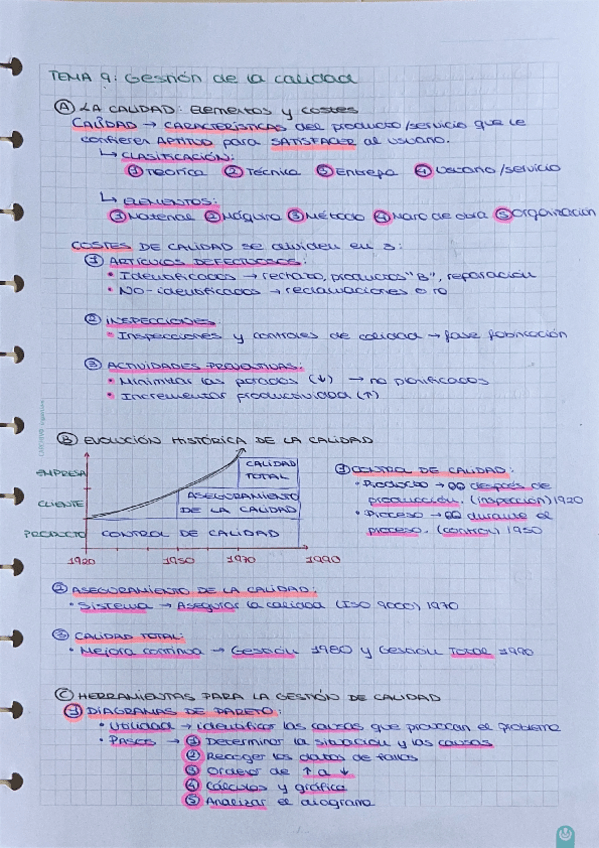 TEMA 9: Gestión de la calidad
Ⓐ LA CALIDAD: Elementos y costes
CALIDAD → CARACTERÍSTICAS del producto/servicio que le
confieren APTITUD para SATISFACER al usuario.
↳ CLASIFICACIÓN:
① Teórica ② Técnica ③ Entrega ④ Usuario/servicio
↳ ELEMENTOS:
① Material ② Máquina ③ Método ④ Mano de obra ⑤ Organización
COSTES DE CALIDAD se dividen en 3:
① ARTÍCULOS DEFECTUOSOS:
• Identificados → rechazo, productos "B", reparación
• No-identificados → reclamaciones o no
② INSPECCIONES
• Inspecciones y controles de calidad → fase fabricación
③ ACTIVIDADES PREVENTIVAS:
• Minimizar las paradas (↓) → no planificadas
• Incrementar productividad (↑)
Ⓑ EVOLUCIÓN HISTÓRICA DE LA CALIDAD
EMPRESA
CLIENTE
PRODUCTO
CALIDAD
TOTAL
ASEGURAMIENTO
DE LA CALIDAD
CONTROL DE CALIDAD
1920 1950 1970 1990
① CONTROL DE CALIDAD:
• Producto → CC después de
producción. (inspección) 1920
• Proceso → CC durante el
proceso. (control) 1950
② ASEGURAMIENTO DE LA CALIDAD:
• Sistema → Asegurar la calidad (ISO 9000) 1970
③ CALIDAD TOTAL:
• Mejora continua → Gestión 1980 y Gestión Total 1990
Ⓒ HERRAMIENTAS PARA LA GESTIÓN DE CALIDAD
① DIAGRAMAS DE PARETO:
• Utilidad → identificar las causas que provocan el problema
• Pasos → ① Determinar la situación y las causas
② Recoger los datos de fallos
③ Ordenar de ↑ a ↓
④ Cálculos y gráfica
⑤ Analizar el diagrama